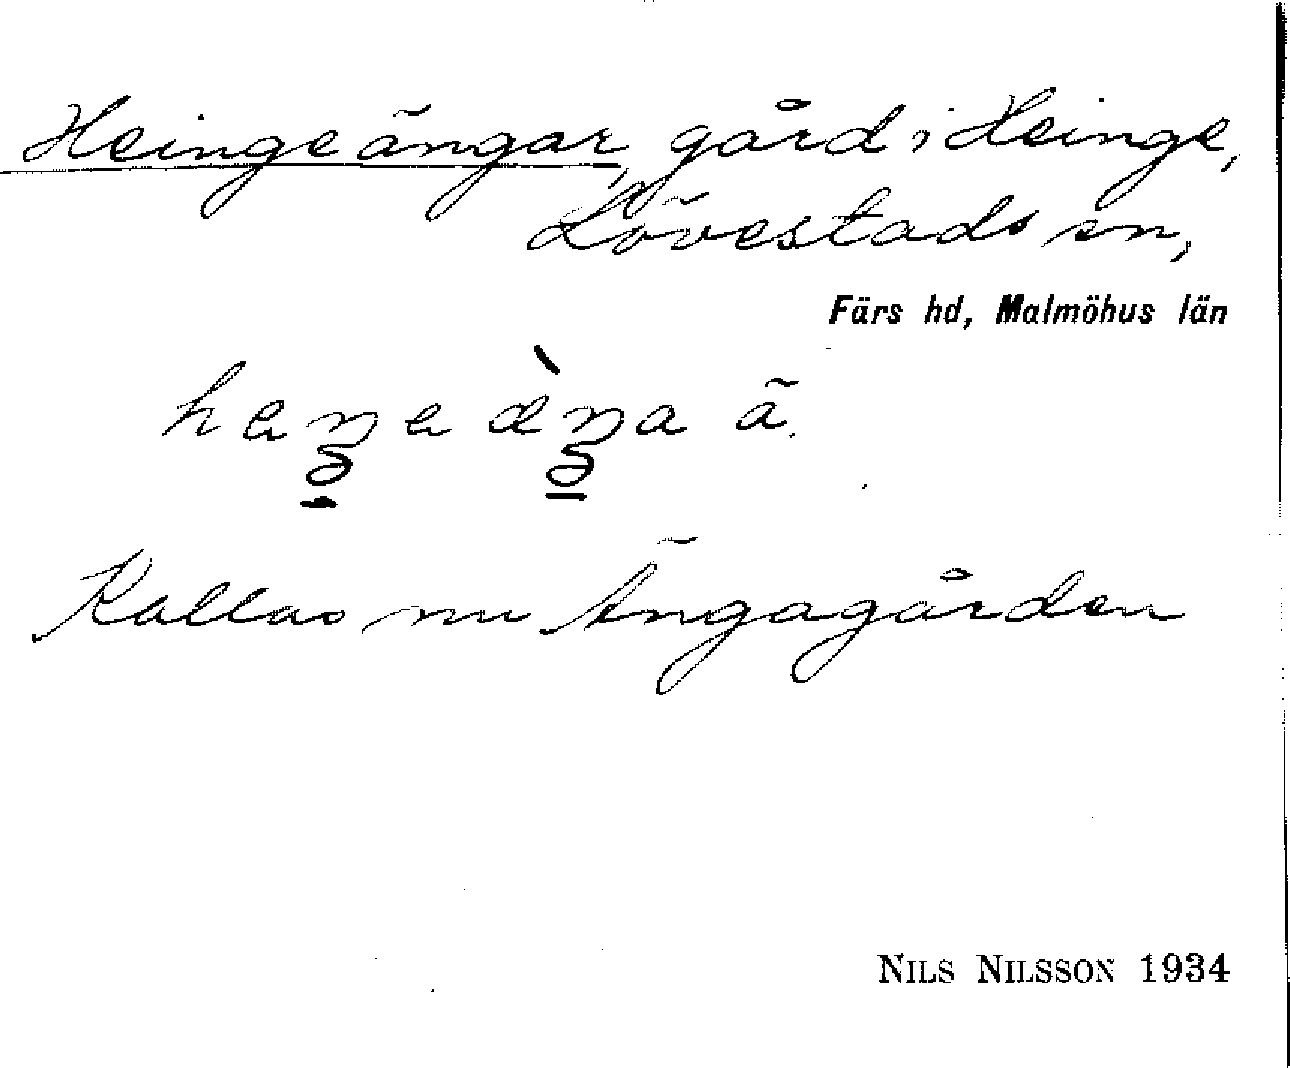 Heinge ängar, gård i Heinge,
Lövestads sn,
Färs hd, Malmöhus län
Kallas nu Ängagården
NILS NILSSON 1934